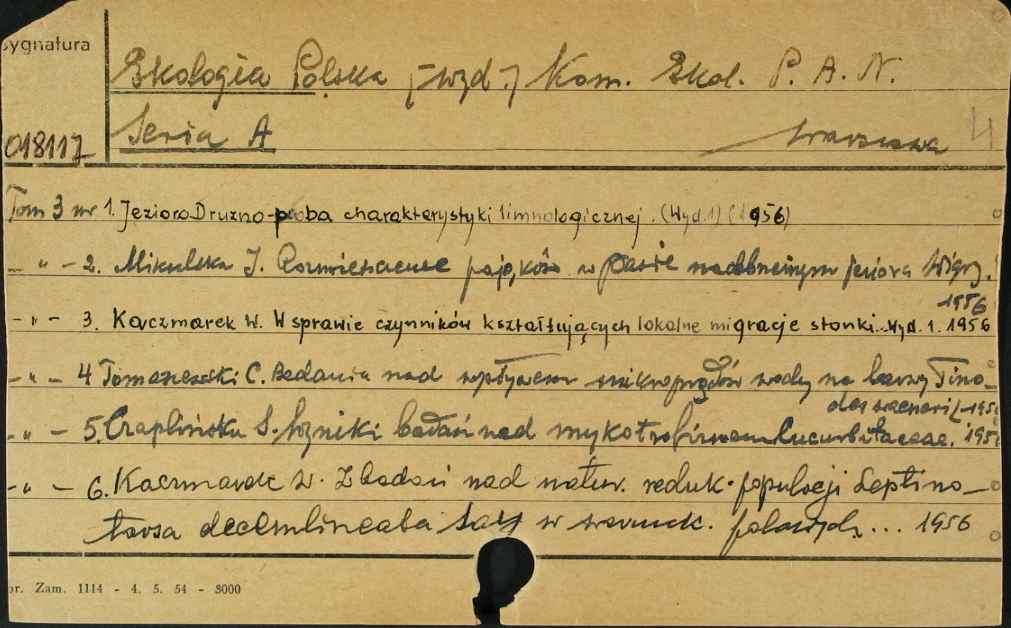 sygnatura
Ekologia Polska [-wyd.] Kom. Ekol. P. A. N.
018117 Seria A Warszawa 4
Tom 3 nr 1. Jezioro Druzno-próba charakterystyki limnologicznej. (Wyd.1) (1956)
– " – 2. Mikulska J. Rozmieszczenie pająków w pasie nadbrzeżnym jeziora Wigry.
1956
– " – 3. Kaczmarek W. W sprawie czynników kształtujących lokalne migracje stonki. Wyd. 1. 1956
– " – 4 Tomaszewski C. Badania nad wpływem mikroprądów wody na larwy Tino-
des waeneri (- 195
– " – 5. Czaplińska S. Wyniki badań nad mykotrofizmem Cucurbitaceae. 195
– " – 6. Kaczmarek W. Z badań nad natur. reduk. populacji Leptino-
tarsa decemlineata Say w warunk. polowych... 1956
or. Zam. 1114 - 4. 5. 54 - 3000